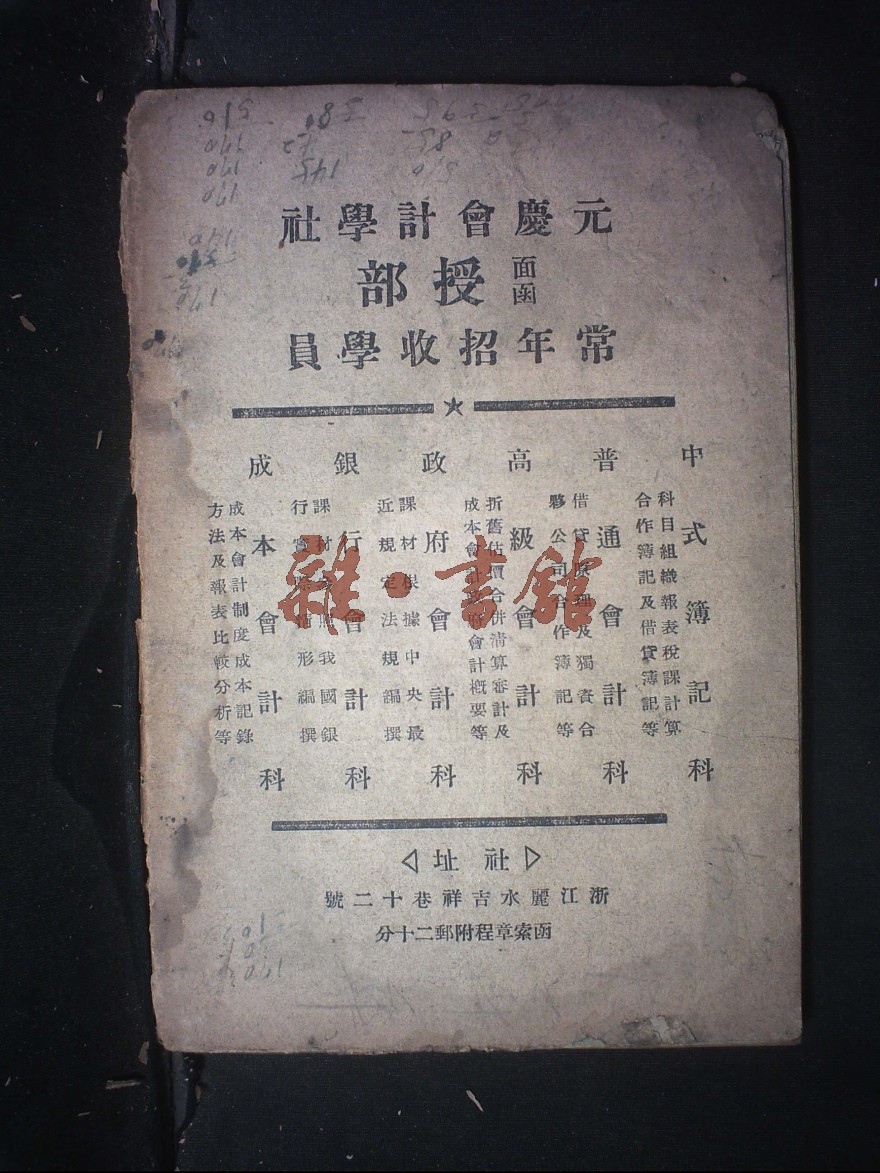 元慶會計學社
面函授部
常年招收學員
中式簿記科
科目組織報表稅課計算
合作簿記及借貸簿記等
普通會計科
借貸原理及獨資合
夥公司合作簿記等
高級會計科
折舊估價合併清算審計及
成本會計政府會計概要等
政府會計科
課材根據中央最
近規定法規編撰
銀行會計科
課材參照我國銀
行實際情形編撰
成本會計科
成本會計制度成本記錄
方法及報表比較分析等
社址
浙江麗水吉祥巷十二號
函索章程附郵二十分
雜·書館
516
170
170
170